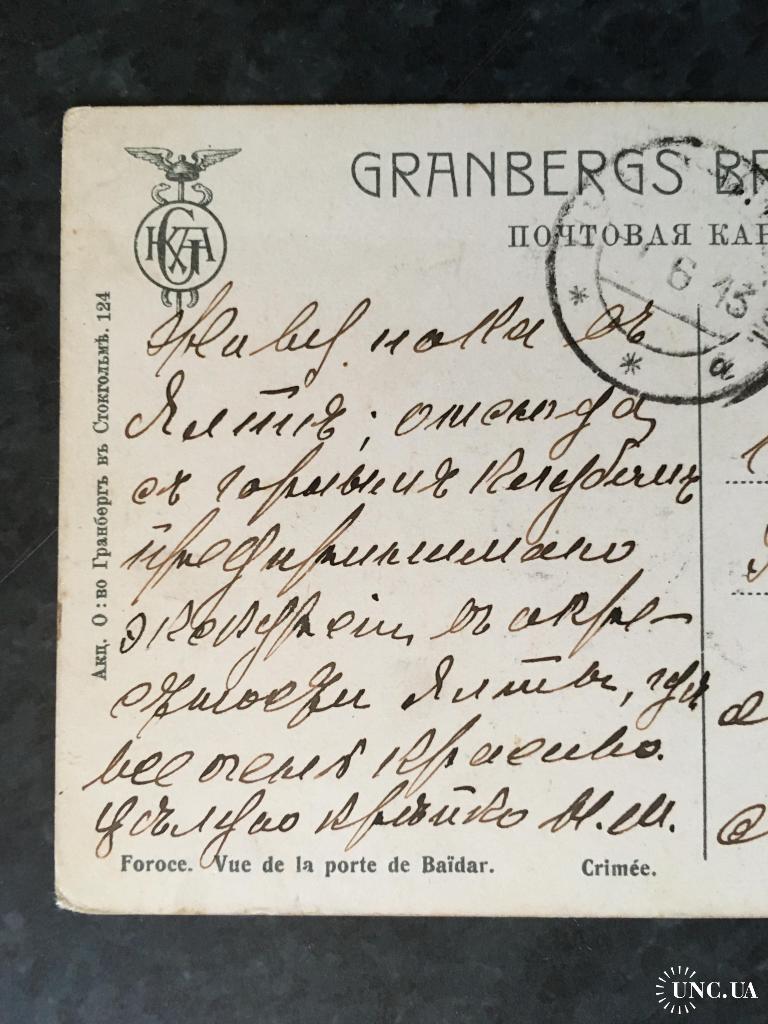 GRANBERGS BR
ПОЧТОВАЯ КАР
6 13
а
Акц. О:во Гранбергъ въ Стокгольмѣ. 124
Живу пока въ
Ялтѣ; отсюда,
съ горнымъ клубомъ
предпринимаю
экскурсіи въ окре-
стности Ялты, гдѣ
все очень красиво.
Цѣлую крѣпко М.М.
Foroce. Vue de la porte de Baïdar. Crimée.
UNC.UA